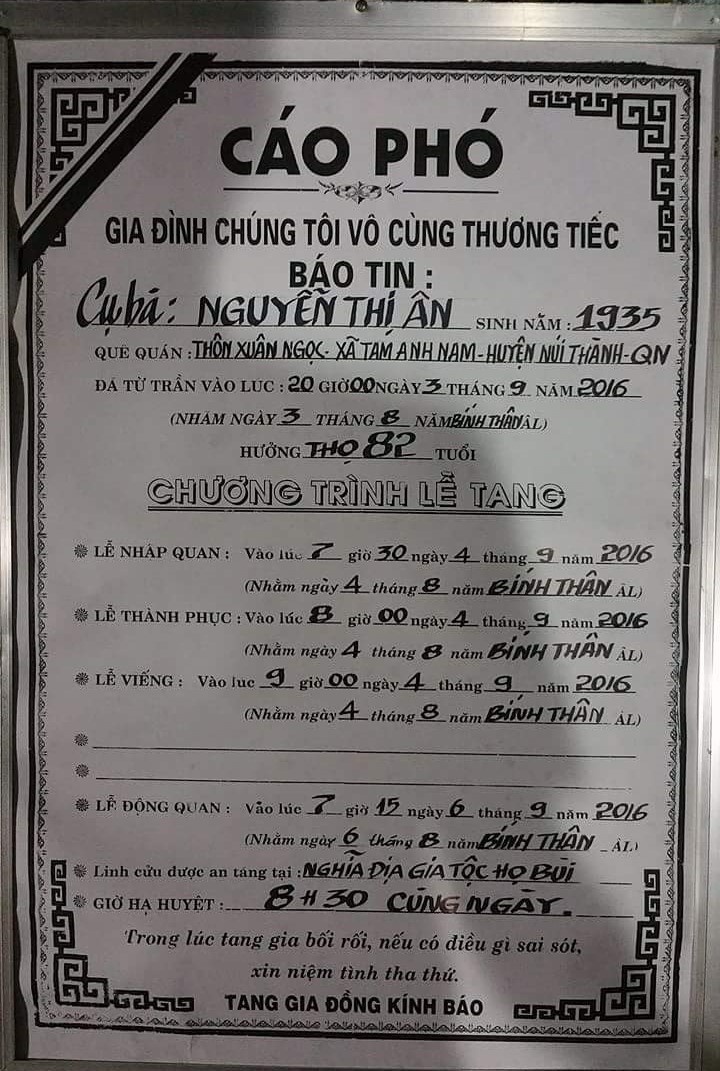 CÁO PHÓ
GIA ĐÌNH CHÚNG TÔI VÔ CÙNG THƯƠNG TIẾC
BÁO TIN :
Cụ bà: NGUYỄN THỊ ÂN SINH NĂM : 1935
QUÊ QUÁN : THÔN XUÂN NGỌC - XÃ TAM ANH NAM - HUYỆN NÚI THÀNH - QN
ĐÃ TỪ TRẦN VÀO LÚC : 20 GIỜ 00 NGÀY 3 THÁNG 9 NĂM 2016
(NHẰM NGÀY 3 THÁNG 8 NĂM BÍNH THÂN ÂL)
HƯỞNG THỌ 82 TUỔI
CHƯƠNG TRÌNH LỄ TANG
LỄ NHẬP QUAN : Vào lúc 7 giờ 30 ngày 4 tháng 9 năm 2016
(Nhằm ngày 4 tháng 8 năm BÍNH THÂN ÂL)
LỄ THÀNH PHỤC : Vào lúc 8 giờ 00 ngày 4 tháng 9 năm 2016
(Nhằm ngày 4 tháng 8 năm BÍNH THÂN ÂL)
LỄ VIẾNG : Vào lúc 9 giờ 00 ngày 4 tháng 9 năm 2016
(Nhằm ngày 4 tháng 8 năm BÍNH THÂN ÂL)
LỄ ĐỘNG QUAN : Vào lúc 7 giờ 15 ngày 6 tháng 9 năm 2016
(Nhằm ngày 6 tháng 8 năm BÍNH THÂN ÂL)
Linh cửu được an táng tại : NGHĨA ĐỊA GIA TỘC HỌ BÙI
GIỜ HẠ HUYỆT : 8H30 CÙNG NGÀY.
Trong lúc tang gia bối rối, nếu có điều gì sai sót,
xin niệm tình tha thứ.
TANG GIA ĐỒNG KÍNH BÁO